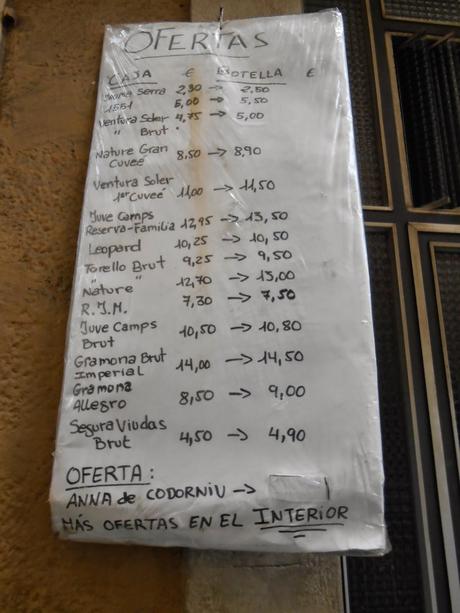 OFERTAS
CAJA € BOTELLA €
Jaume Serra 2,30 → 2,50
1551 5,00 → 5,50
Ventura Soler 4,75 → 5,00
" Brut "
Nature Gran
Cuveé 8,50 → 8,90
Ventura Soler
1er Cuveé 11,00 → 11,50
Juve Camps
Reserva-Familia 12,95 → 13,50
Leopard 10,25 → 10,50
Torello Brut 9,25 → 9,50
" "
Nature 12,70 → 13,00
R.J.M. 7,30 → 7,50
Juve Camps
Brut 10,50 → 10,80
Gramona Brut
Imperial 14,00 → 14,50
Gramona
Allegro 8,50 → 9,00
Segura Viudas
Brut 4,50 → 4,90
OFERTA:
ANNA de CODORNIU →
MÁS OFERTAS EN EL INTERIOR